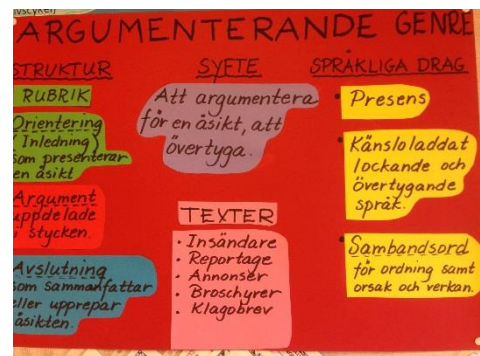 ARGUMENTERANDE GENRE
STRUKTUR
RUBRIK
Orientering
Inledning
som presenterar
en åsikt
Argument
uppdelade
i stycken.
Avslutning
som sammanfattar
eller upprepar
åsikten.
SYFTE
Att argumentera
för en åsikt, att
övertyga.
TEXTER
• Insändare
• Reportage
• Annonser
• Broschyrer
• Klagobrev
SPRÅKLIGA DRAG
• Presens
• Känsloladdat
lockande och
övertygande
språk.
• Sambandsord
för ordning samt
orsak och verkan.